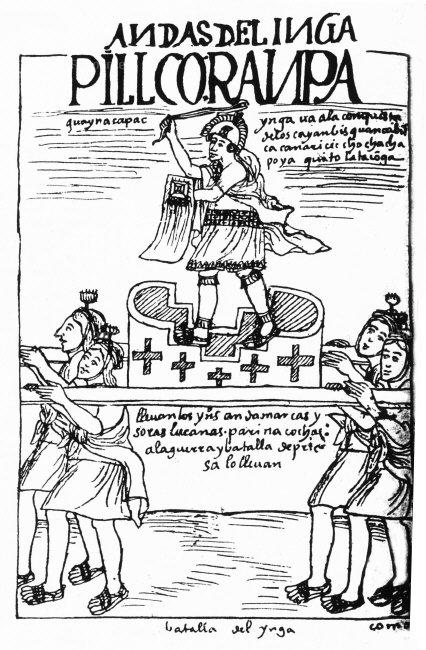 ANDAS DEL INGA
PILLCORANPA
guaynacapac
ynga ua ala conquista
delos cayanbis guancabil
ca cañari cicho chacha
poya quito lataciga
lleuan los ynºs andamarcas y
soras lucanas. parinacochas:
ala guerra y batalla depries
sa lo lleuan
batalla del ynga
como